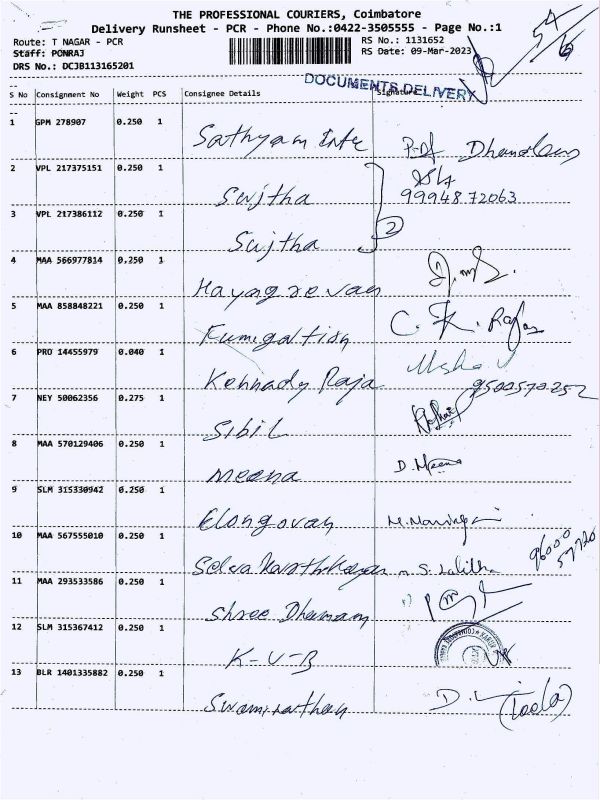 THE PROFESSIONAL COURIERS, Coimbatore
Delivery Runsheet - PCR - Phone No.:0422-3505555 - Page No.:1
Route: T NAGAR - PCR RS No.: 1131652
Staff: PONRAJ RS Date: 09-Mar-2023
DRS No.: DCJB113165201
54/6
DOCUMENTS DELIVERY
S No Consignment No Weight PCS Consignee Details Signature
1 GPM 278907 0.250 1 Sathyam
2 VPL 217375151 0.250 1 Sujtha 9994872063
3 VPL 217386112 0.250 1 Sujtha 2
4 MAA 566977814 0.250 1 Hayagrevan
5 MAA 858848221 0.250 1 Fumigation C. K. Rajan
6 PRO 14455979 0.040 1 Kennady Raja Usha 9500570252
7 NEY 50062356 0.275 1 Sibil
8 MAA 570129406 0.250 1 Meena D. Meena
9 SLM 315330942 0.250 1 Elangovan
10 MAA 567555010 0.250 1 S. Lalitha
11 MAA 293533586 0.250 1 Shree
12 SLM 315367412 0.250 1 K-V-B
13 BLR 1401335882 0.250 1 Swaminathan